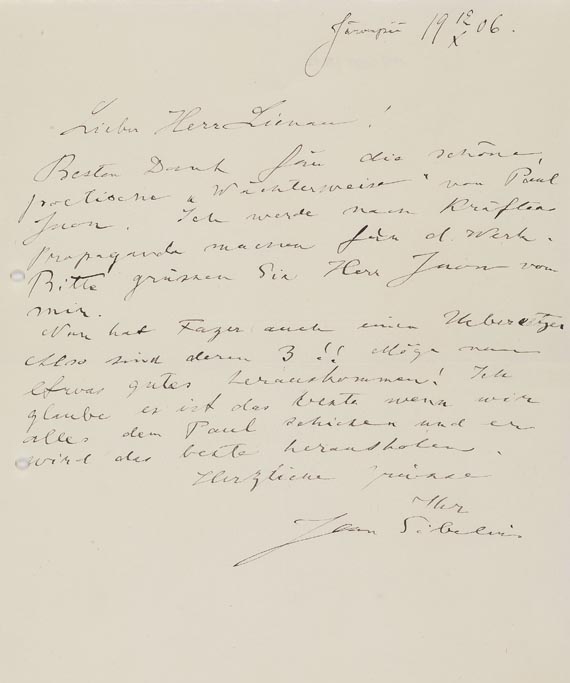 Järvenpää 19 12/X 06.
Lieber Herr Lienau!
Besten Dank für die schöne,
poetische "Wächterweise" von Paul
Juon. Ich werde nach Kräften
Propaganda machen für d. Werk.
Bitte grüssen Sie Herr Juon von
mir.
Nun hat Fazer auch einen Uebersetzer
Also sind deren 3!! Möge nun
etwas gutes herauskommen! Ich
glaube es ist das beste wenn wir
alles dem Paul schicken und er
wird das beste herausholen.
Herzliche Grüsse
Ihr
Jean Sibelius